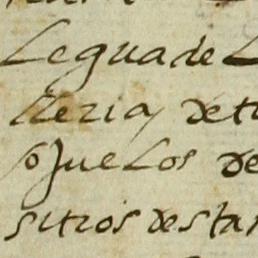 Legua de L
tteria, de tr
sojuelos de
sitios de star